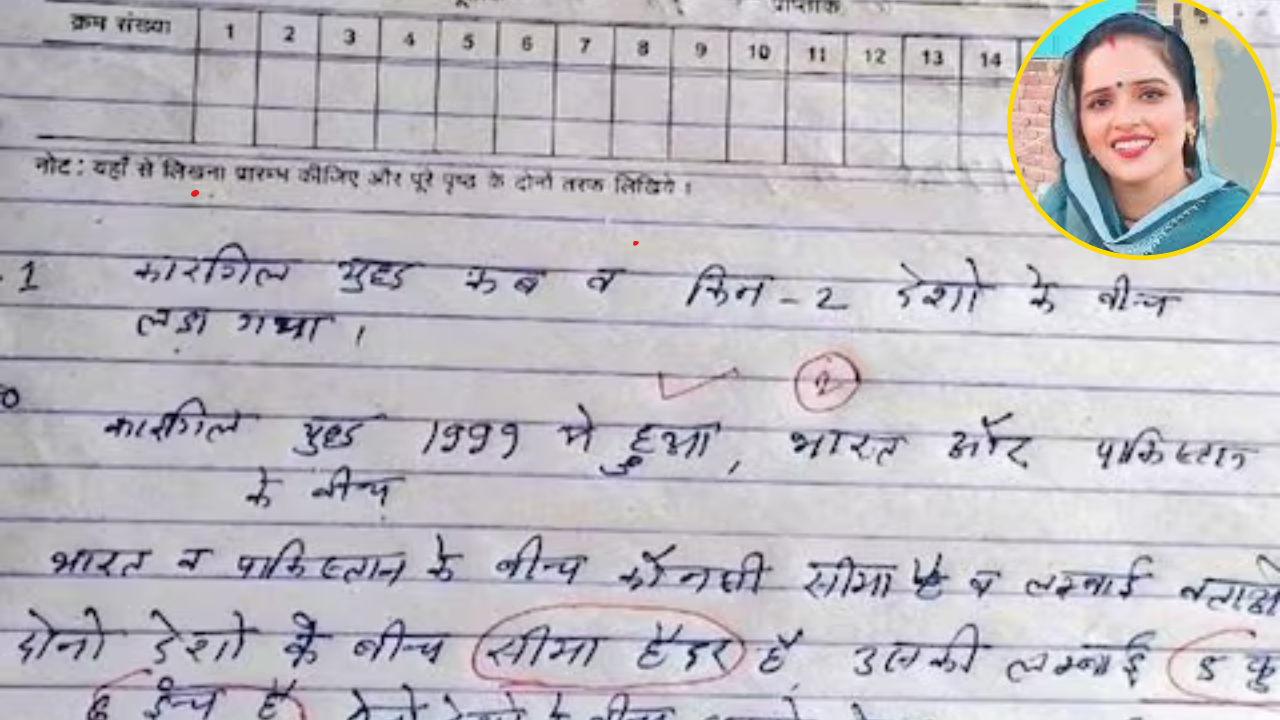 प्राप्तांक
क्रम संख्या 1 2 3 4 5 6 7 8 9 10 11 12 13 14
नोट : यहाँ से लिखना प्रारम्भ कीजिए और पूरे पृष्ठ के दोनों तरफ लिखिये ।
1 कारगिल युद्ध कब व किन - 2 देशो के बीच
लडा गया ।
2
कारगिल युद्ध 1999 मे हुआ, भारत और पाकिस्तान
के बीच
भारत व पाकिस्तान के बीच कौनसी सीमा है व लम्बाई बताओ
दोनो देशो के बीच सीमा हैदर है, उसकी लम्बाई 5 फु
6 इंच है